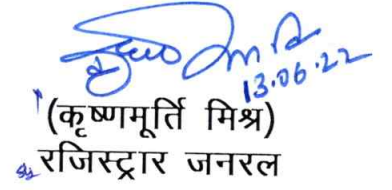 13.06.22
(कृष्णमूर्ति मिश्र)
रजिस्ट्रार जनरल